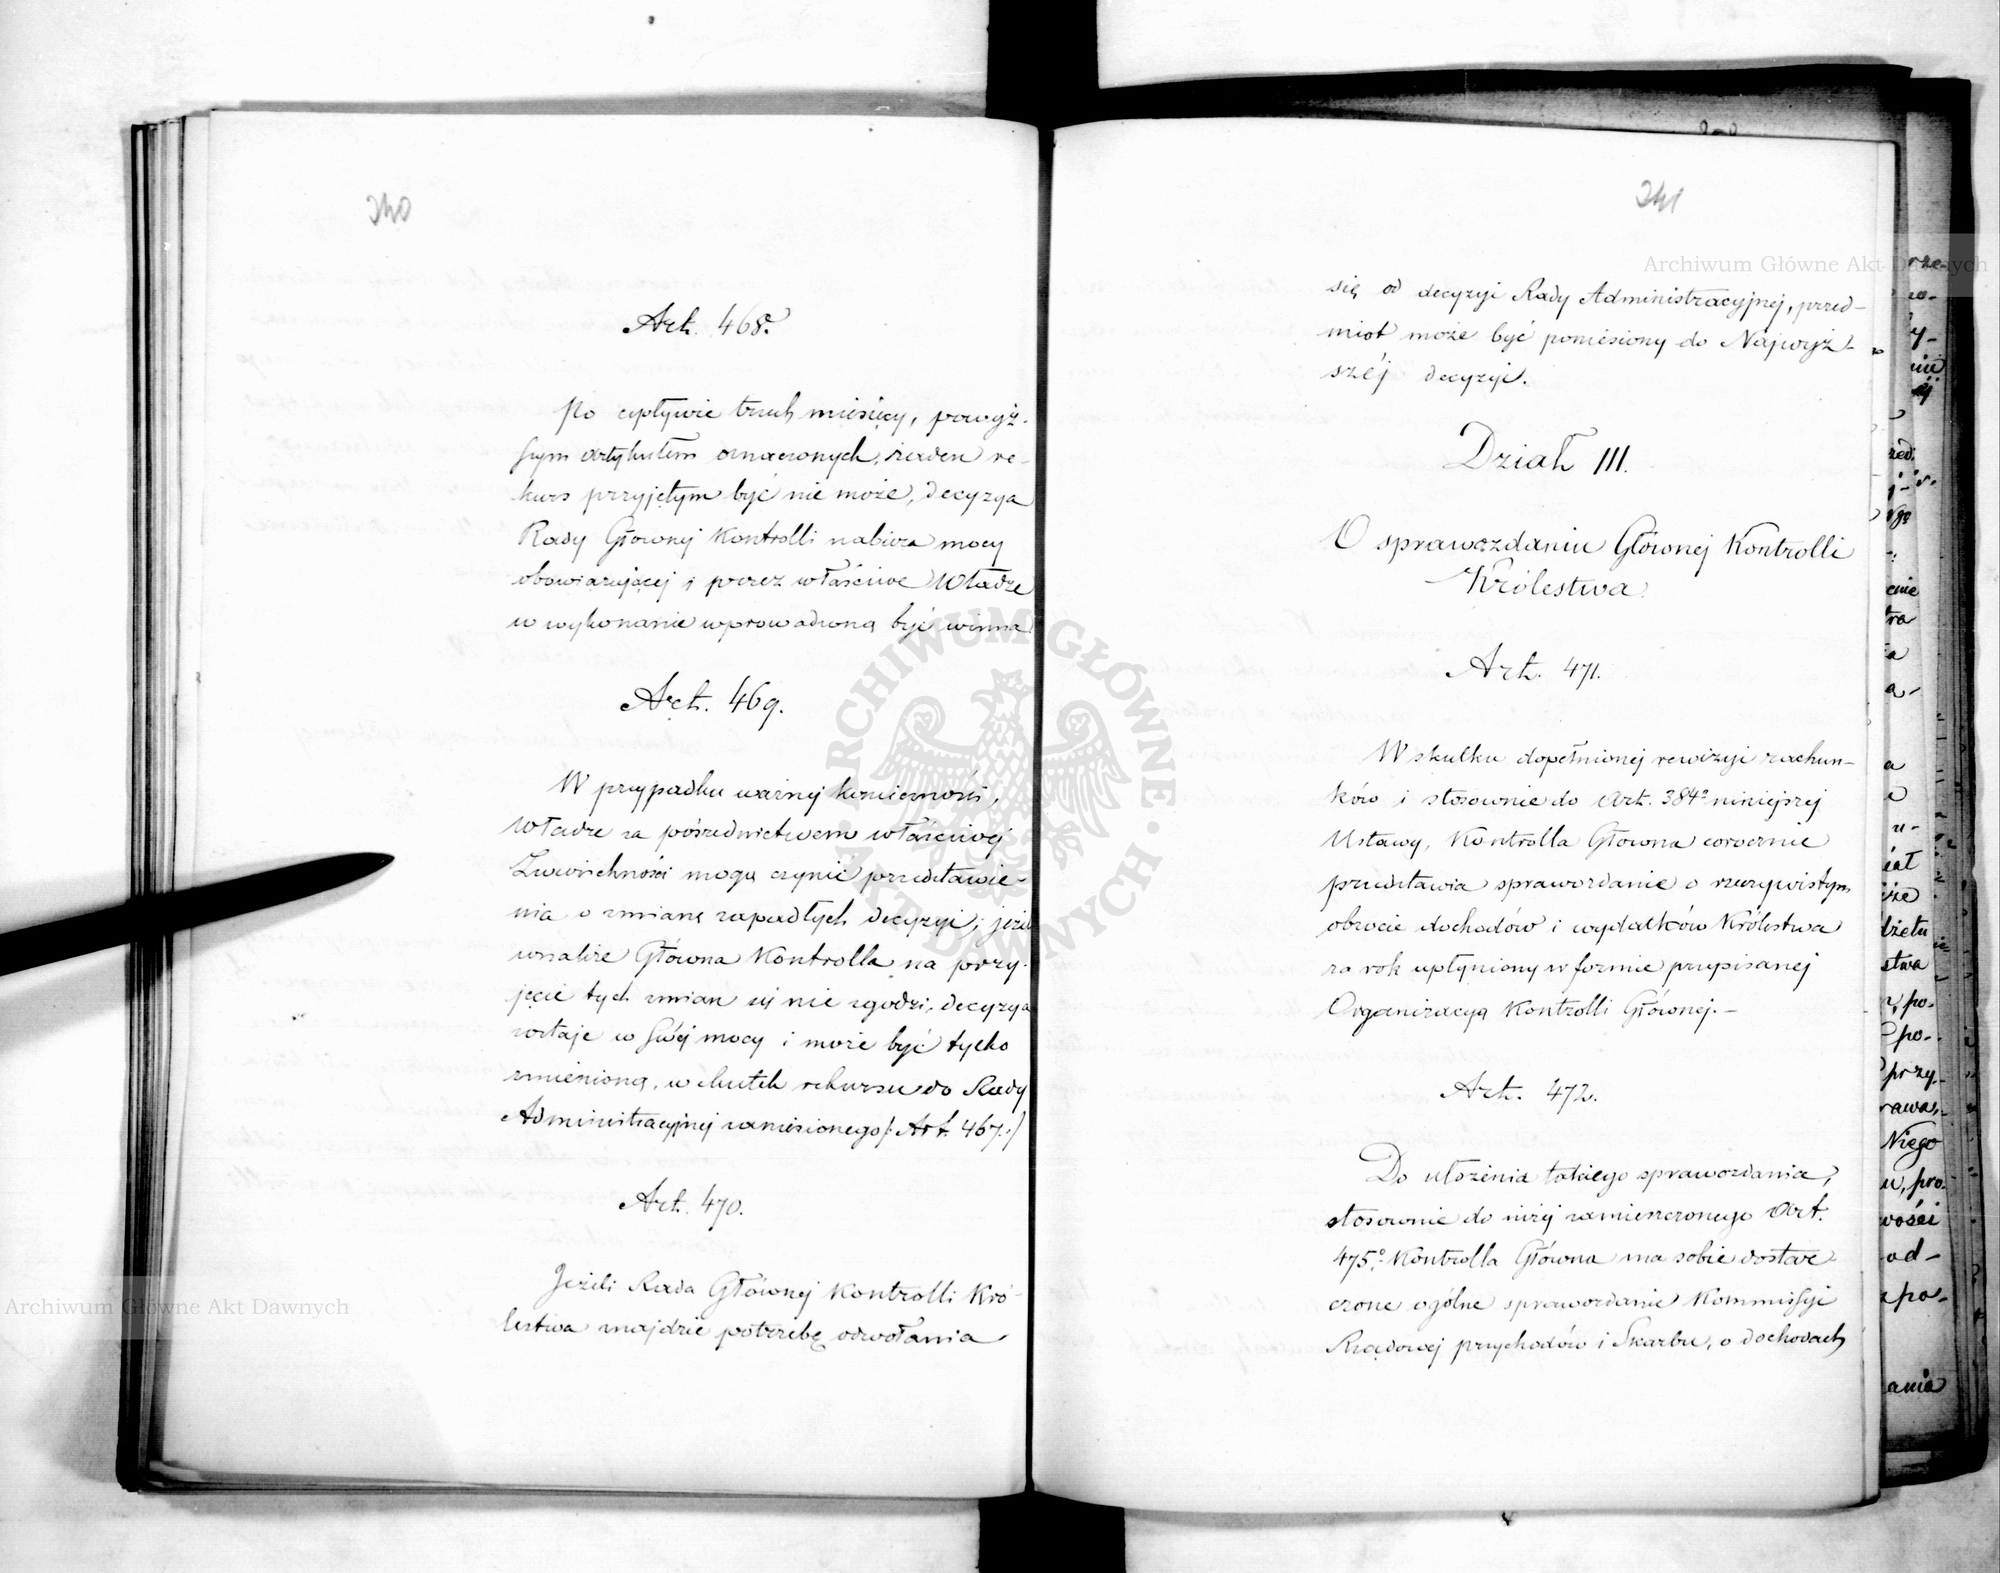 240
Art. 468.
Po upływie trzech miesięcy, powyż-
szym artykułem oznaczonych, żaden re-
kurs przyjętym być nie może, decyzya
Rady Głownej Kontrolli nabiera mocy
obowiązującej i przez właściwe Władze
w wykonanie wprowadzoną być winna
Art. 469.
W przypadku ważnej konieczności,
Władze za pośrednictwem właściwej
Zwierzchności mogą czynić przedstawie-
nia o zmianę zapadłych decyzyi; jeżeli
wszakże Główna Kontrolla na przy-
jęcie tych zmian się nie zgodzi, decyzya
zostaje w swéj mocy i może być tylko
zmienioną, w skutek rekursu do Rady
Administracyjnej zaniesionego /: Art. 467 :/
Art. 470.
Jeżeli Rada Głównej Kontrolli Kró-
lestwa znajdzie potrzebę odwołania
241
się od decyzyi Rady Administracyjnéj, przed-
miot może być poniesiony do Najwyż-
széj decyzyi.
Dział III.
O sprawozdaniu Głównej Kontrolli
Królestwa
Art. 471.
W skutku dopełnionej rewizyi rachun-
ków i stosownie do Art. 384º niniejszej
Ustawy, Kontrolla Głowna corocznie
przedstawia sprawozdanie o rzeczywistym
obrocie dochodów i wydatków Królestwa
za rok upłyniony w formie przepisanej
Organizacyą Kontrolli Głównej. –
Art. 472.
Do ułożenia takiego sprawozdania,
stosownie do niżej zamieszczonego Art.
475º Kontrolla Główna ma sobie dostar-
czone ogólne sprawozdanie Kommissyi
Rządowej przychodów i Skarbu, o dochodach
Archiwum Główne Akt Dawnych
Archiwum Główne Akt Dawnych
ARCHIWUM GŁÓWNE · AKT DAWNYCH ·